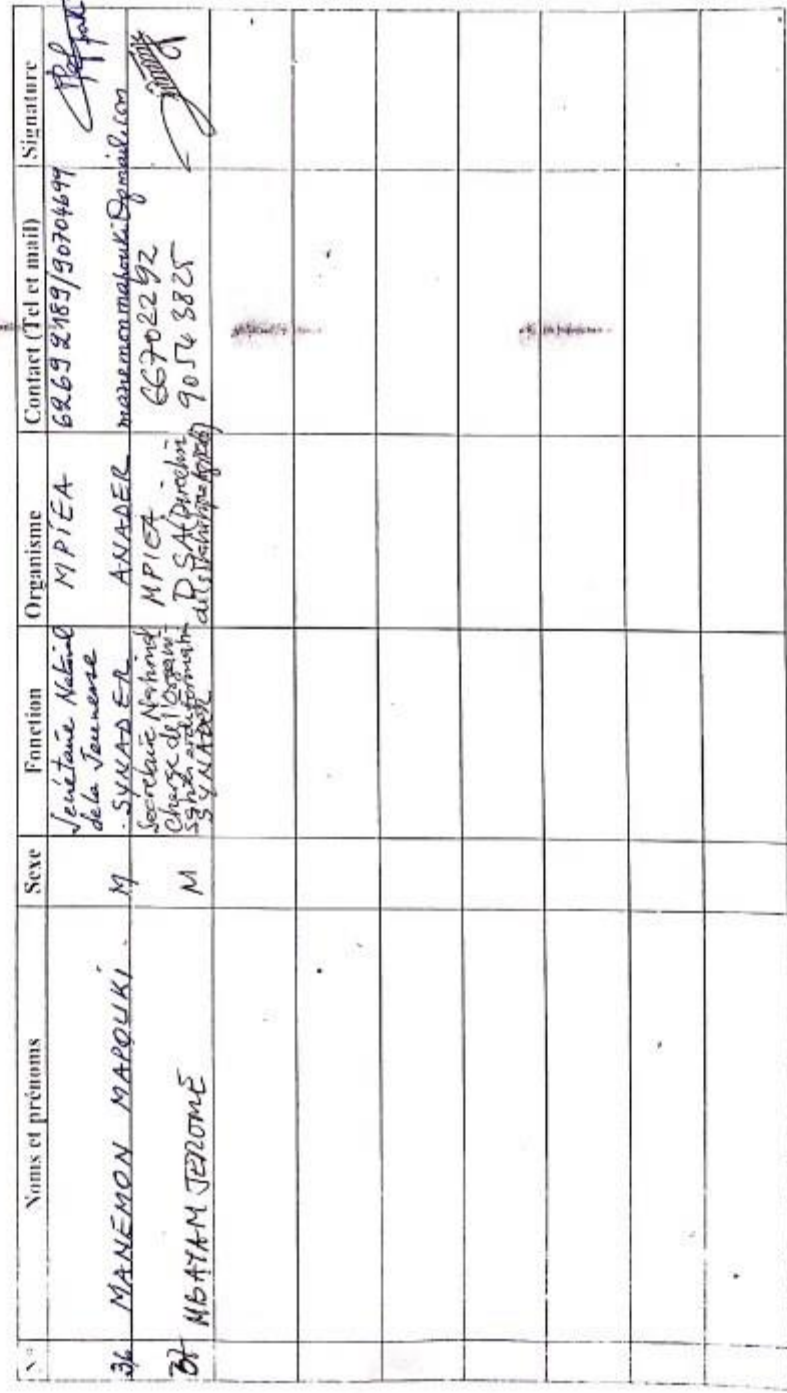 N° Noms et prénoms Sexe Fonction Organisme Contact (Tel et mail) Signature
36 MANEMON MAPOUKI M Secrétaire National de la Jeunesse SYNADER MPIEA ANADER 62692189/90704699 manemonmapouki@gmail.com
37 MBAYAM JEROME M Secretaire National Chargé de l'Organi- et de formation SYNADER MPIEA DSA (Direction 66702292 90543825